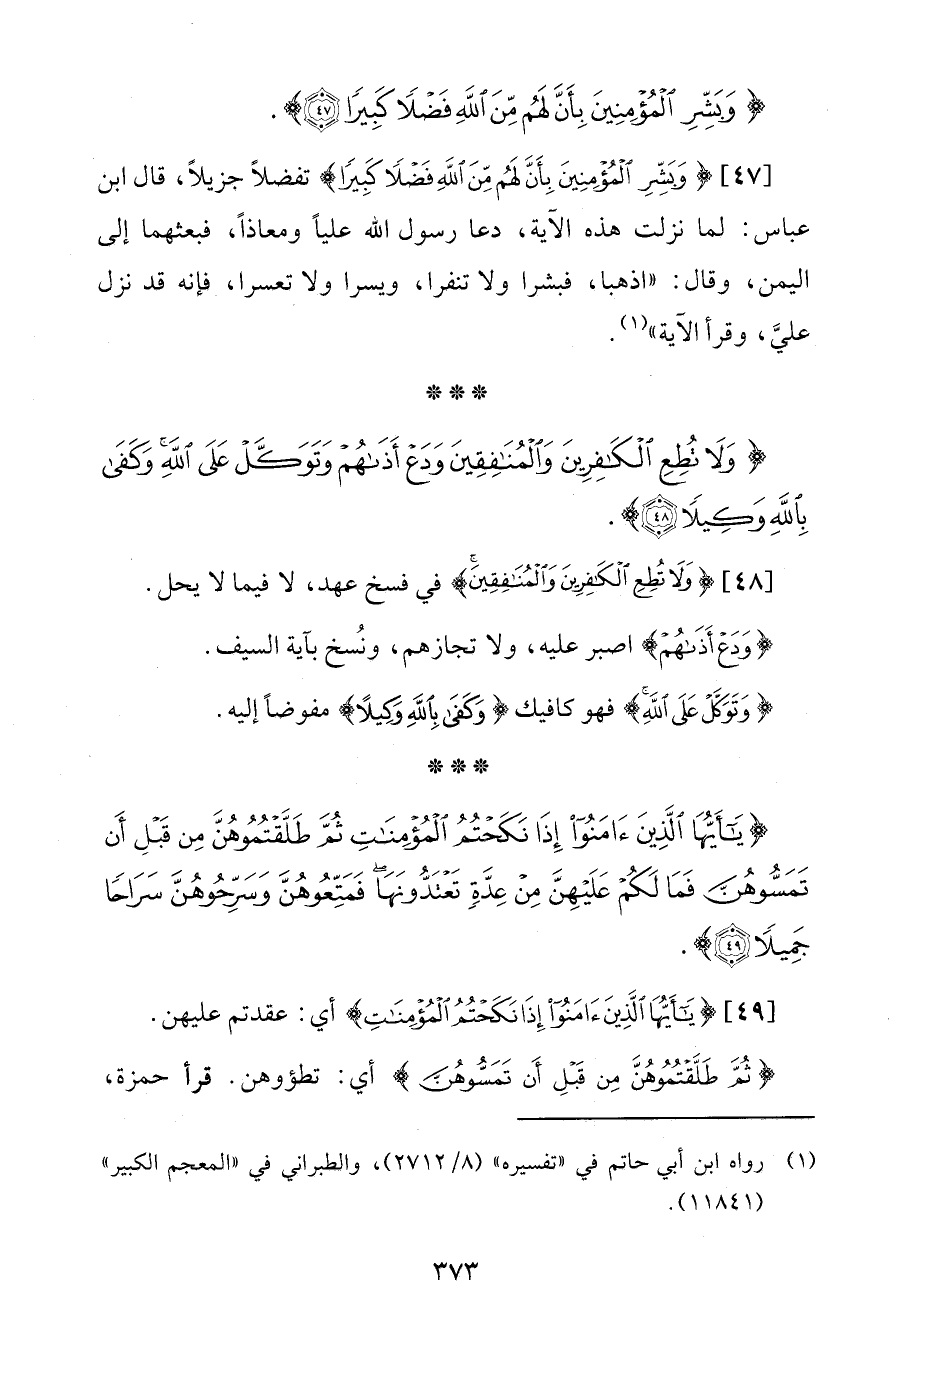 ﴿ وَبَشِّرِ الْمُؤْمِنِينَ بِأَنَّ لَهُم مِّنَ اللَّهِ فَضْلًا كَبِيرًا ٤٧ ﴾ .
[٤٧] ﴿ وَبَشِّرِ الْمُؤْمِنِينَ بِأَنَّ لَهُم مِّنَ اللَّهِ فَضْلًا كَبِيرًا ﴾ تفضلاً جزيلاً، قال ابن
عباس: لما نزلت هذه الآية، دعا رسول الله علياً ومعاذاً، فبعثهما إلى
اليمن، وقال: «اذهبا، فبشرا ولا تنفرا، ويسرا ولا تعسرا، فإنه قد نزل
عليَّ، وقرأ الآية»(١).
* * *
﴿ وَلَا تُطِعِ الْكَافِرِينَ وَالْمُنَافِقِينَ وَدَعْ أَذَىٰهُمْ وَتَوَكَّلْ عَلَى اللَّهِ ۚ وَكَفَىٰ
بِاللَّهِ وَكِيلًا ٤٨ ﴾ .
[٤٨] ﴿ وَلَا تُطِعِ الْكَافِرِينَ وَالْمُنَافِقِينَ ۚ ﴾ في فسخ عهد، لا فيما لا يحل .
﴿ وَدَعْ أَذَىٰهُمْ ﴾ اصبر عليه، ولا تجازهم، ونُسخ بآية السيف .
﴿ وَتَوَكَّلْ عَلَى اللَّهِ ۚ ﴾ فهو كافيك ﴿ وَكَفَىٰ بِاللَّهِ وَكِيلًا ﴾ مفوضاً إليه .
* * *
﴿ يَٰٓأَيُّهَا الَّذِينَ ءَامَنُوٓا۟ إِذَا نَكَحْتُمُ الْمُؤْمِنَٰتِ ثُمَّ طَلَّقْتُمُوهُنَّ مِن قَبْلِ أَن
تَمَسُّوهُنَّ فَمَا لَكُمْ عَلَيْهِنَّ مِنْ عِدَّةٍ تَعْتَدُّونَهَا ۖ فَمَتِّعُوهُنَّ وَسَرِّحُوهُنَّ سَرَاحًا
جَمِيلًا ٤٩ ﴾ .
[٤٩] ﴿ يَٰٓأَيُّهَا الَّذِينَ ءَامَنُوٓا۟ إِذَا نَكَحْتُمُ الْمُؤْمِنَٰتِ ﴾ أي: عقدتم عليهن .
﴿ ثُمَّ طَلَّقْتُمُوهُنَّ مِن قَبْلِ أَن تَمَسُّوهُنَّ ﴾ أي: تطؤوهن . قرأ حمزة،
(١) رواه ابن أبي حاتم في «تفسيره» (٨/ ٢٧١٢)، والطبراني في «المعجم الكبير»
(١١٨٤١).
٣٧٣